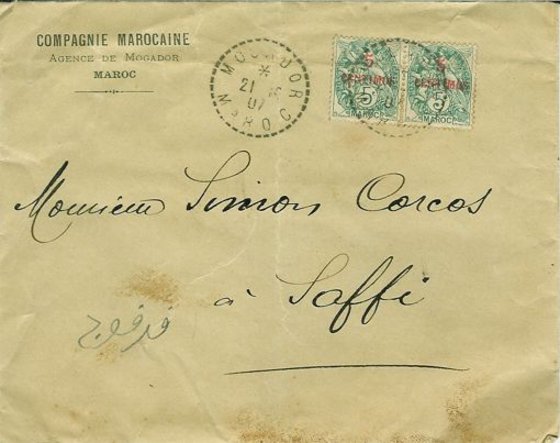 COMPAGNIE MAROCAINE
AGENCE DE MOGADOR
MAROC
MOGADOR
*
21
07
MAROC
5
CENTIMOS
5
MAROC
5
CENTIMOS
5
MAROC
Monsieur Simon Corcos
à Saffi